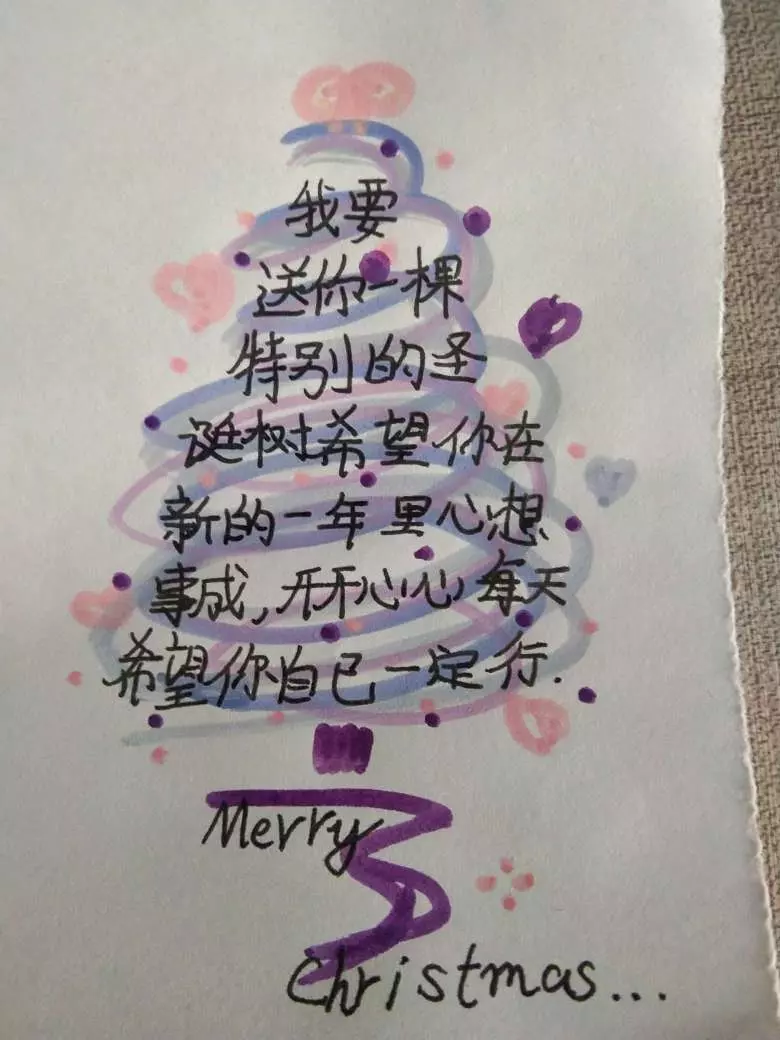 我要
送你一棵
特别的圣
诞树希望你在
新的一年里心想
事成,开开心心每天
希望你自已一定行.
Merry
Christmas...